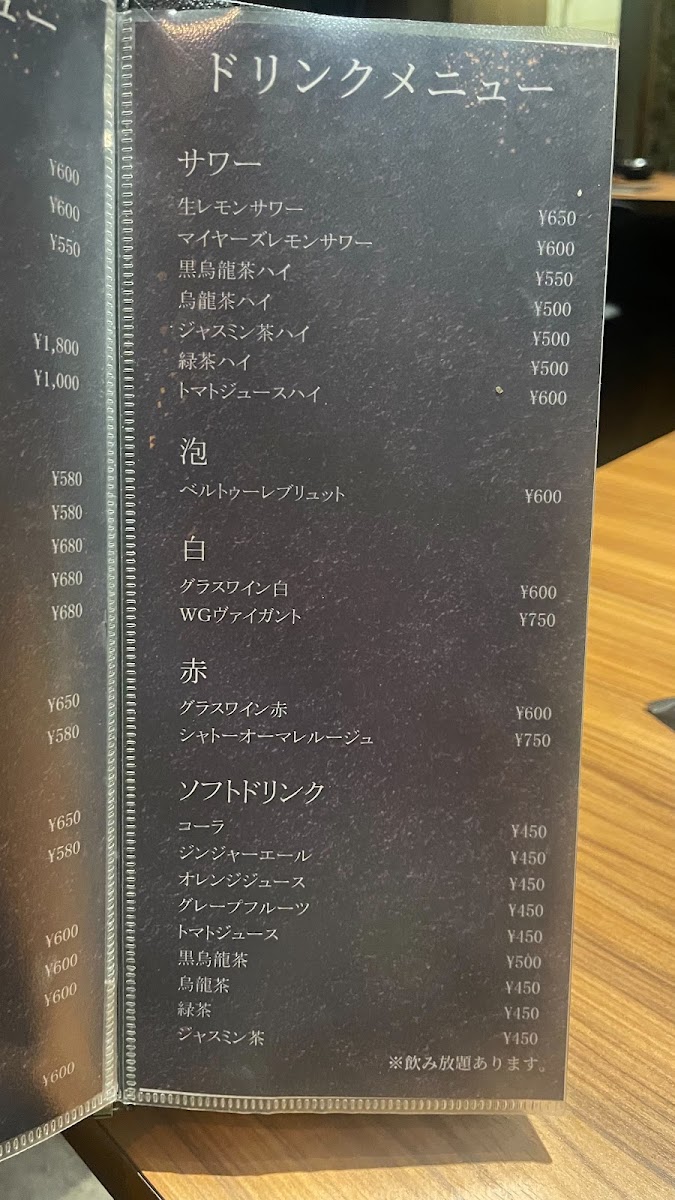 ュー
¥600
¥600
¥550
¥1,800
¥1,000
¥580
¥580
¥680
¥680
¥680
¥650
¥580
¥650
¥580
¥600
¥600
¥600
¥600
ドリンクメニュー
サワー
生レモンサワー ¥650
マイヤーズレモンサワー ¥600
黒烏龍茶ハイ ¥550
烏龍茶ハイ ¥500
ジャスミン茶ハイ ¥500
緑茶ハイ ¥500
トマトジュースハイ ¥600
泡
ベルトゥーレブリュット ¥600
白
グラスワイン白 ¥600
WGヴァイガント ¥750
赤
グラスワイン赤 ¥600
シャトーオーマレルージュ ¥750
ソフトドリンク
コーラ ¥450
ジンジャーエール ¥450
オレンジジュース ¥450
グレープフルーツ ¥450
トマトジュース ¥450
黒烏龍茶 ¥500
烏龍茶 ¥450
緑茶 ¥450
ジャスミン茶 ¥450
※飲み放題あります。